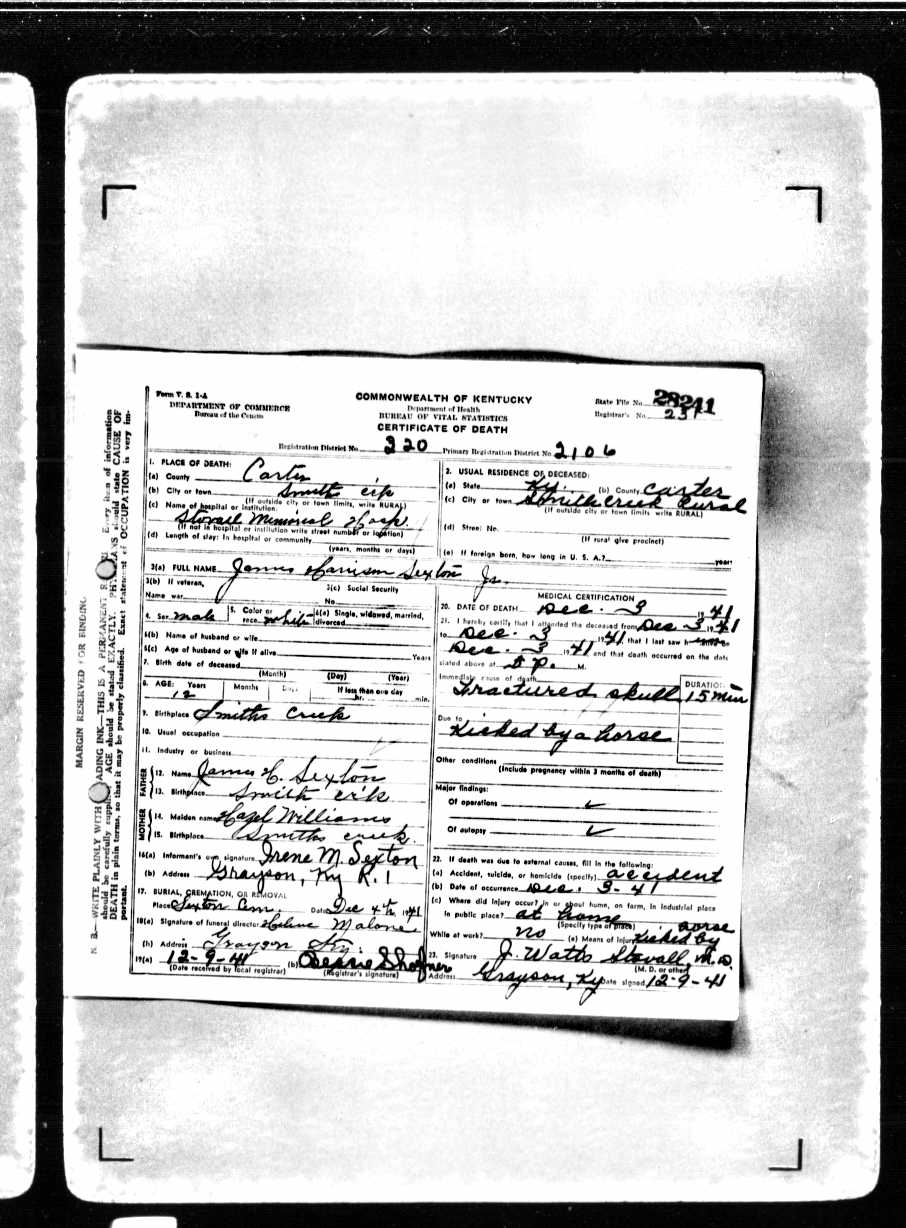 Form V. S. 1-A
DEPARTMENT OF COMMERCE
Bureau of the Census
COMMONWEALTH OF KENTUCKY
Department of Health
BUREAU OF VITAL STATISTICS
CERTIFICATE OF DEATH
State File No. 28241
Registrar's No. 237
Registration District No. 220 Primary Registration District No. 2106
MARGIN RESERVED FOR BINDING
N. B.—WRITE PLAINLY WITH UNFADING INK—THIS IS A PERMANENT Every item of information
should be carefully supplied. AGE should be stated EXACTLY. should state CAUSE OF
DEATH in plain terms, so that it may be properly classified. Exact statement of OCCUPATION is very im-
portant.
1. PLACE OF DEATH:
(a) County Carter
(b) City or town Smith crk
(If outside city or town limits, write RURAL)
(c) Name of hospital or institution:
Stovall Memorial Hosp.
(If not in hospital or institution write street number or location)
(d) Length of stay: In hospital or community
(years, months or days)
2. USUAL RESIDENCE OF DECEASED:
(a) State Ky. (b) County Carter
(c) City or town Smith Crick Rural
(If outside city or town limits write RURAL)
(d) Street No.
(If rural give precinct)
(e) If foreign born, how long in U. S. A.? years
3(a) FULL NAME James Harrison Sexton Jr.
3(b) If veteran,
Name war
3(c) Social Security
No.
4. Sex male 5. Color or race white 6(a) Single, widowed, married, divorced
6(b) Name of husband or wife
6(c) Age of husband or wife if alive Years
7. Birth date of deceased
(Month) (Day) (Year)
8. AGE: Years Months Days If less than one day
12 hr. min.
9. Birthplace Smiths Crick
10. Usual occupation
11. Industry or business
FATHER
12. Name James H. Sexton
13. Birthplace Smith crk
MOTHER
14. Maiden name Hazel Williams
15. Birthplace Smiths crick
16(a) Informant's own signature Irene M. Sexton
(b) Address Grayson, Ky R. 1
17. BURIAL, CREMATION, OR REMOVAL
Place Sexton Cem Date Dec 4th 1941
18(a) Signature of funeral director Malone
(b) Address Grayson Ky.
19(a) 12-9-41 (b)
(Date received by local registrar) (Registrar's signature)
MEDICAL CERTIFICATION
20. DATE OF DEATH Dec. 3 1941
21. I hereby certify that I attended the deceased from Dec 3 1941
to Dec. 3 1941 that I last saw h
Dec. 3 1941 and that death occurred on the date
stated above at P. M.
Immediate cause of death DURATION
Fractured skull 15 min
Due to
Kicked by a horse
Other conditions
(Include pregnancy within 3 months of death)
Major findings:
Of operations ✓
Of autopsy ✓
22. If death was due to external causes, fill in the following:
(a) Accident, suicide, or homicide (specify) accident
(b) Date of occurrence Dec. 3-41
(c) Where did injury occur? in or about home, on farm, in industrial place
in public place? at home
(Specify type of place)
While at work? no (e) Means of injury Kicked by horse
23. Signature J. Watts Stovall, M.D.
(M. D. or other)
Address Grayson, Ky Date signed 12-9-41